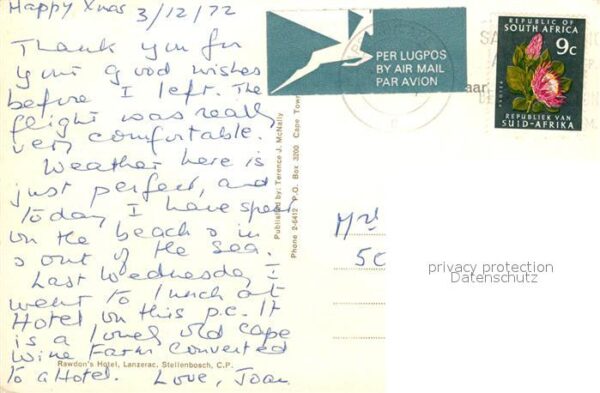 Happy Xmas 3/12/72
Thank you for
your good wishes
before I left. The
flight was really
very comfortable.
Weather here is
just perfect, and
today I have spent
on the beach & in
& out of the sea.
Last Wednesday I
went to lunch at
Hotel on this p.c. It
is a lovely old Cape
Wine Farm converted
to a Hotel. Love, Joan
Rawdon's Hotel, Lanzerac, Stellenbosch, C.P.
Published by: Terence J. McNally
Phone 2-6412 P.O. Box 3200 Cape Town
PER LUGPOS
BY AIR MAIL
PAR AVION
REPUBLIC OF
SOUTH AFRICA
9c
PROTEA
REPUBLIEK VAN
SUID-AFRIKA
aar
50
privacy protection
Datenschutz